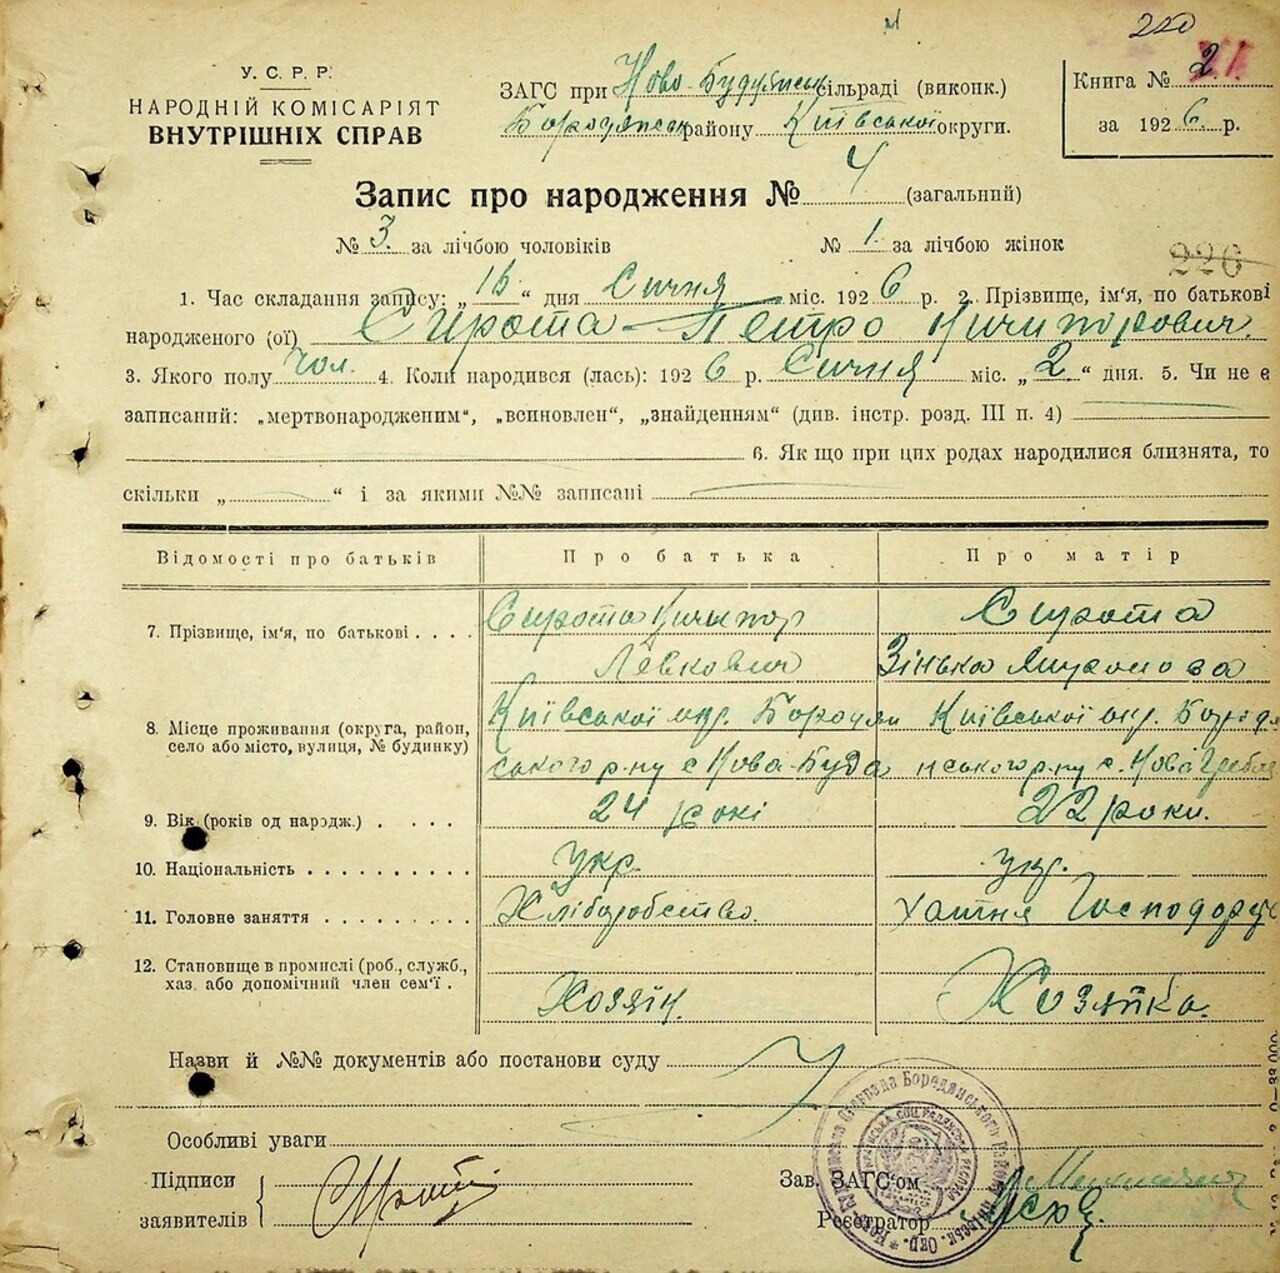 220
У. С. Р. Р.
НАРОДНІЙ КОМІСАРІЯТ
ВНУТРІШНІХ СПРАВ
ЗАГС при Ново-Будянськ сільраді (виконк.)
Бородянськ району Київської округи.
Книга № 2
за 1926 р.
Запис про народження № 4 (загальний)
№ 3. за лічбою чоловіків № 1. за лічбою жінок
226
1. Час складання запису: „ “ дня Січня міс. 1926 р. 2. Прізвище, ім'я, по батькові
народженого (ої) Сирота Петро Ничипорович.
3. Якого полу чол. 4. Коли народився (лась): 1926 р. Січня міс. „2“ дня. 5. Чи не є
записаний: „мертвонародженим“, „всиновлен“, „знайденням“ (див. інстр. розд. III п. 4)
6. Як що при цих родах народилися близнята, то
скільки „ “ і за якими №№ записані
Відомості про батьків Про батька Про матір
7. Прізвище, ім'я, по батькові . . . . Сирота Ничипор Левкович Сирота Зінька Миронова
8. Місце проживання (округа, район, село або місто, вулиця, № будинку) Київської окр. Бородянського р-ну с Нова-Буда Київської окр. Бородянського р-ну с. Нова Гребля
9. Вік (років од народж.) . . . . 24 рокі 22 роки.
10. Національність . . . . . . . . . . Укр. укр.
11. Головне заняття . . . . . . . . . Хліборобство. хатня Господорс
12. Становище в промислі (роб., служб., хаз. або допомічний член сем'ї . Хозяїн. Хозяйка.
Назви й №№ документів або постанови суду
Особливі уваги
Підписи
заявителів
Зав. ЗАГС'ом
Реєстратор